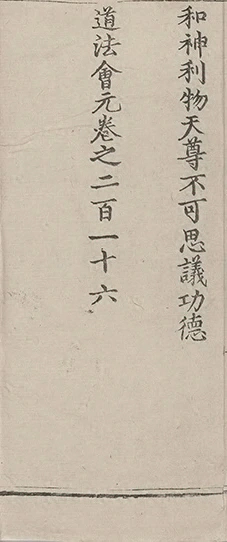 和神利物天尊不可思議功德
道法會元卷之二百一十六